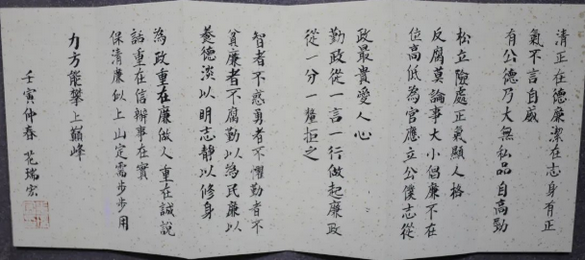 清正在德廉潔在志身有正
氣不言自威
有公德乃大無私品自高勁
松立險處正氣顯人格
反腐莫論事大小倡廉不在
位高低為官應立公僕志從
政最貴愛人心
勤政從一言一行做起廉政
從一分一釐拒之
智者不惑勇者不懼勤者不
貧廉者不腐勤以為民廉以
養德淡以明志靜以修身
為政重在廉做人重在誠說
話重在信辦事在實
保清廉似上山定需步步用
力方能攀上巔峰
壬寅仲春 瑞宏